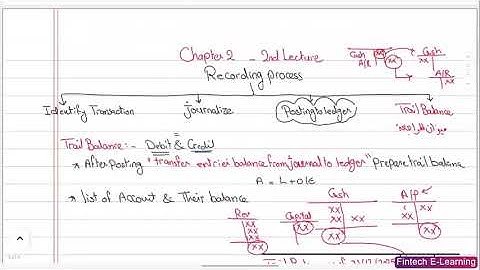 Chapter 2 - 2nd Lecture
Recording process
Cash
A/R
xx
xx
Cash
xx
A/R
xx
Identify Transaction
journalize
Posting to ledger
Trail Balance
ميزان المراجعة
Trail Balance :- Debit & Credit
* After Posting "transfer entries balance from journal to ledger" Prepare trail balance
A = L + O/E
* list of Account & Their balance
Rev
xx
xx
xx
xx
Capital
xx
xx
Cash
xx
xx
xx
xx
A/P
xx
xx
xx
xx
Fintech E-Learning